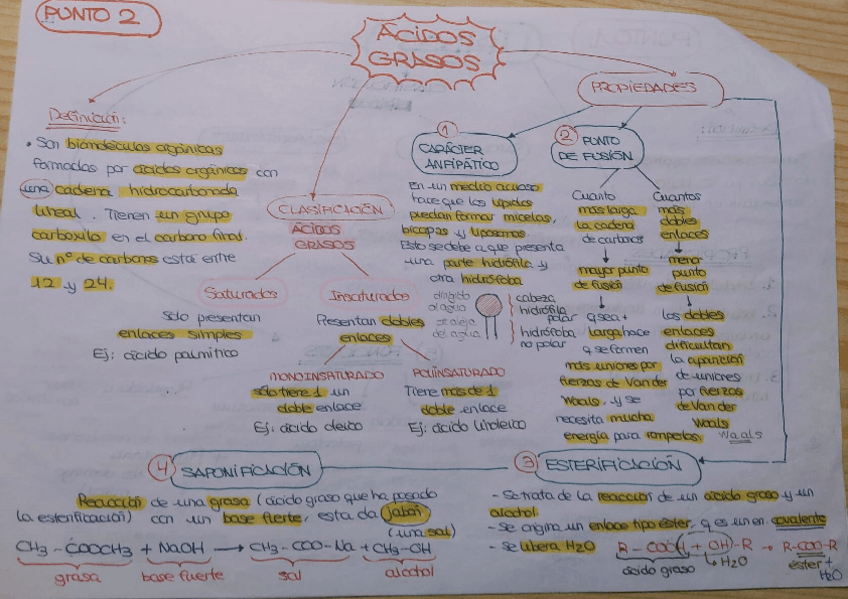 PUNTO 2
ÁCIDOS
GRASOS
Definición:
• Son biomoléculas orgánicas
formadas por ácidos orgánicos con
una cadena hidrocarbonada
lineal. Tienen un grupo
carboxilo en el carbono final.
Su nº de carbonos está entre
12 y 24.
CLASIFICACIÓN
ÁCIDOS
GRASOS
Saturados
Sólo presentan
enlaces simples
Ej: ácido palmítico
Insaturados
Presentan dobles
enlaces
MONOINSATURADO
sólo tiene 1 un
doble enlace
Ej: ácido oleico
POLIINSATURADO
Tiene más de 1
doble enlace
Ej: ácido linoleico
PROPIEDADES
1
CARÁCTER
ANFIPÁTICO
En un medio acuoso
hace que los lípidos
puedan formar micelas,
bicapas y liposomas.
Esto se debe a que presenta
una parte hidrófila y
otra hidrófoba
dirigido
al agua
se aleja
del agua
cabeza
hidrófila
polar
hidrófoba
no polar
2
PUNTO
DE FUSIÓN
Cuanto
más larga
la cadena
de carbonos
mayor punto
de fusión
q sea +
larga hace
q se formen
más uniones por
fuerzas de Van der
Waals, y se
necesita mucha
energía para romperlos.
Cuantos
más
dobles
enlaces
menor
punto
de fusión
los dobles
enlaces
dificultan
la aparición
de uniones
por fuerzas
de Van der
Waals
Waals
3
ESTERIFICACIÓN
- Se trata de la reacción de un ácido graso y un
alcohol
- Se origina un enlace tipo éster, q es un en. covalente
- Se libera H2O
R - COOH + OH - R → R-COO-R
ácido graso
H2O
éster +
H2O
4
SAPONIFICACIÓN
Reacción de una grasa (ácido graso que ha pasado
la esterificación) con un base fuerte, esta da jabón
(una sal)
CH3 - COOCH3 + NaOH → CH3 - COO-Na + CH3-OH
grasa
base fuerte
sal
alcohol